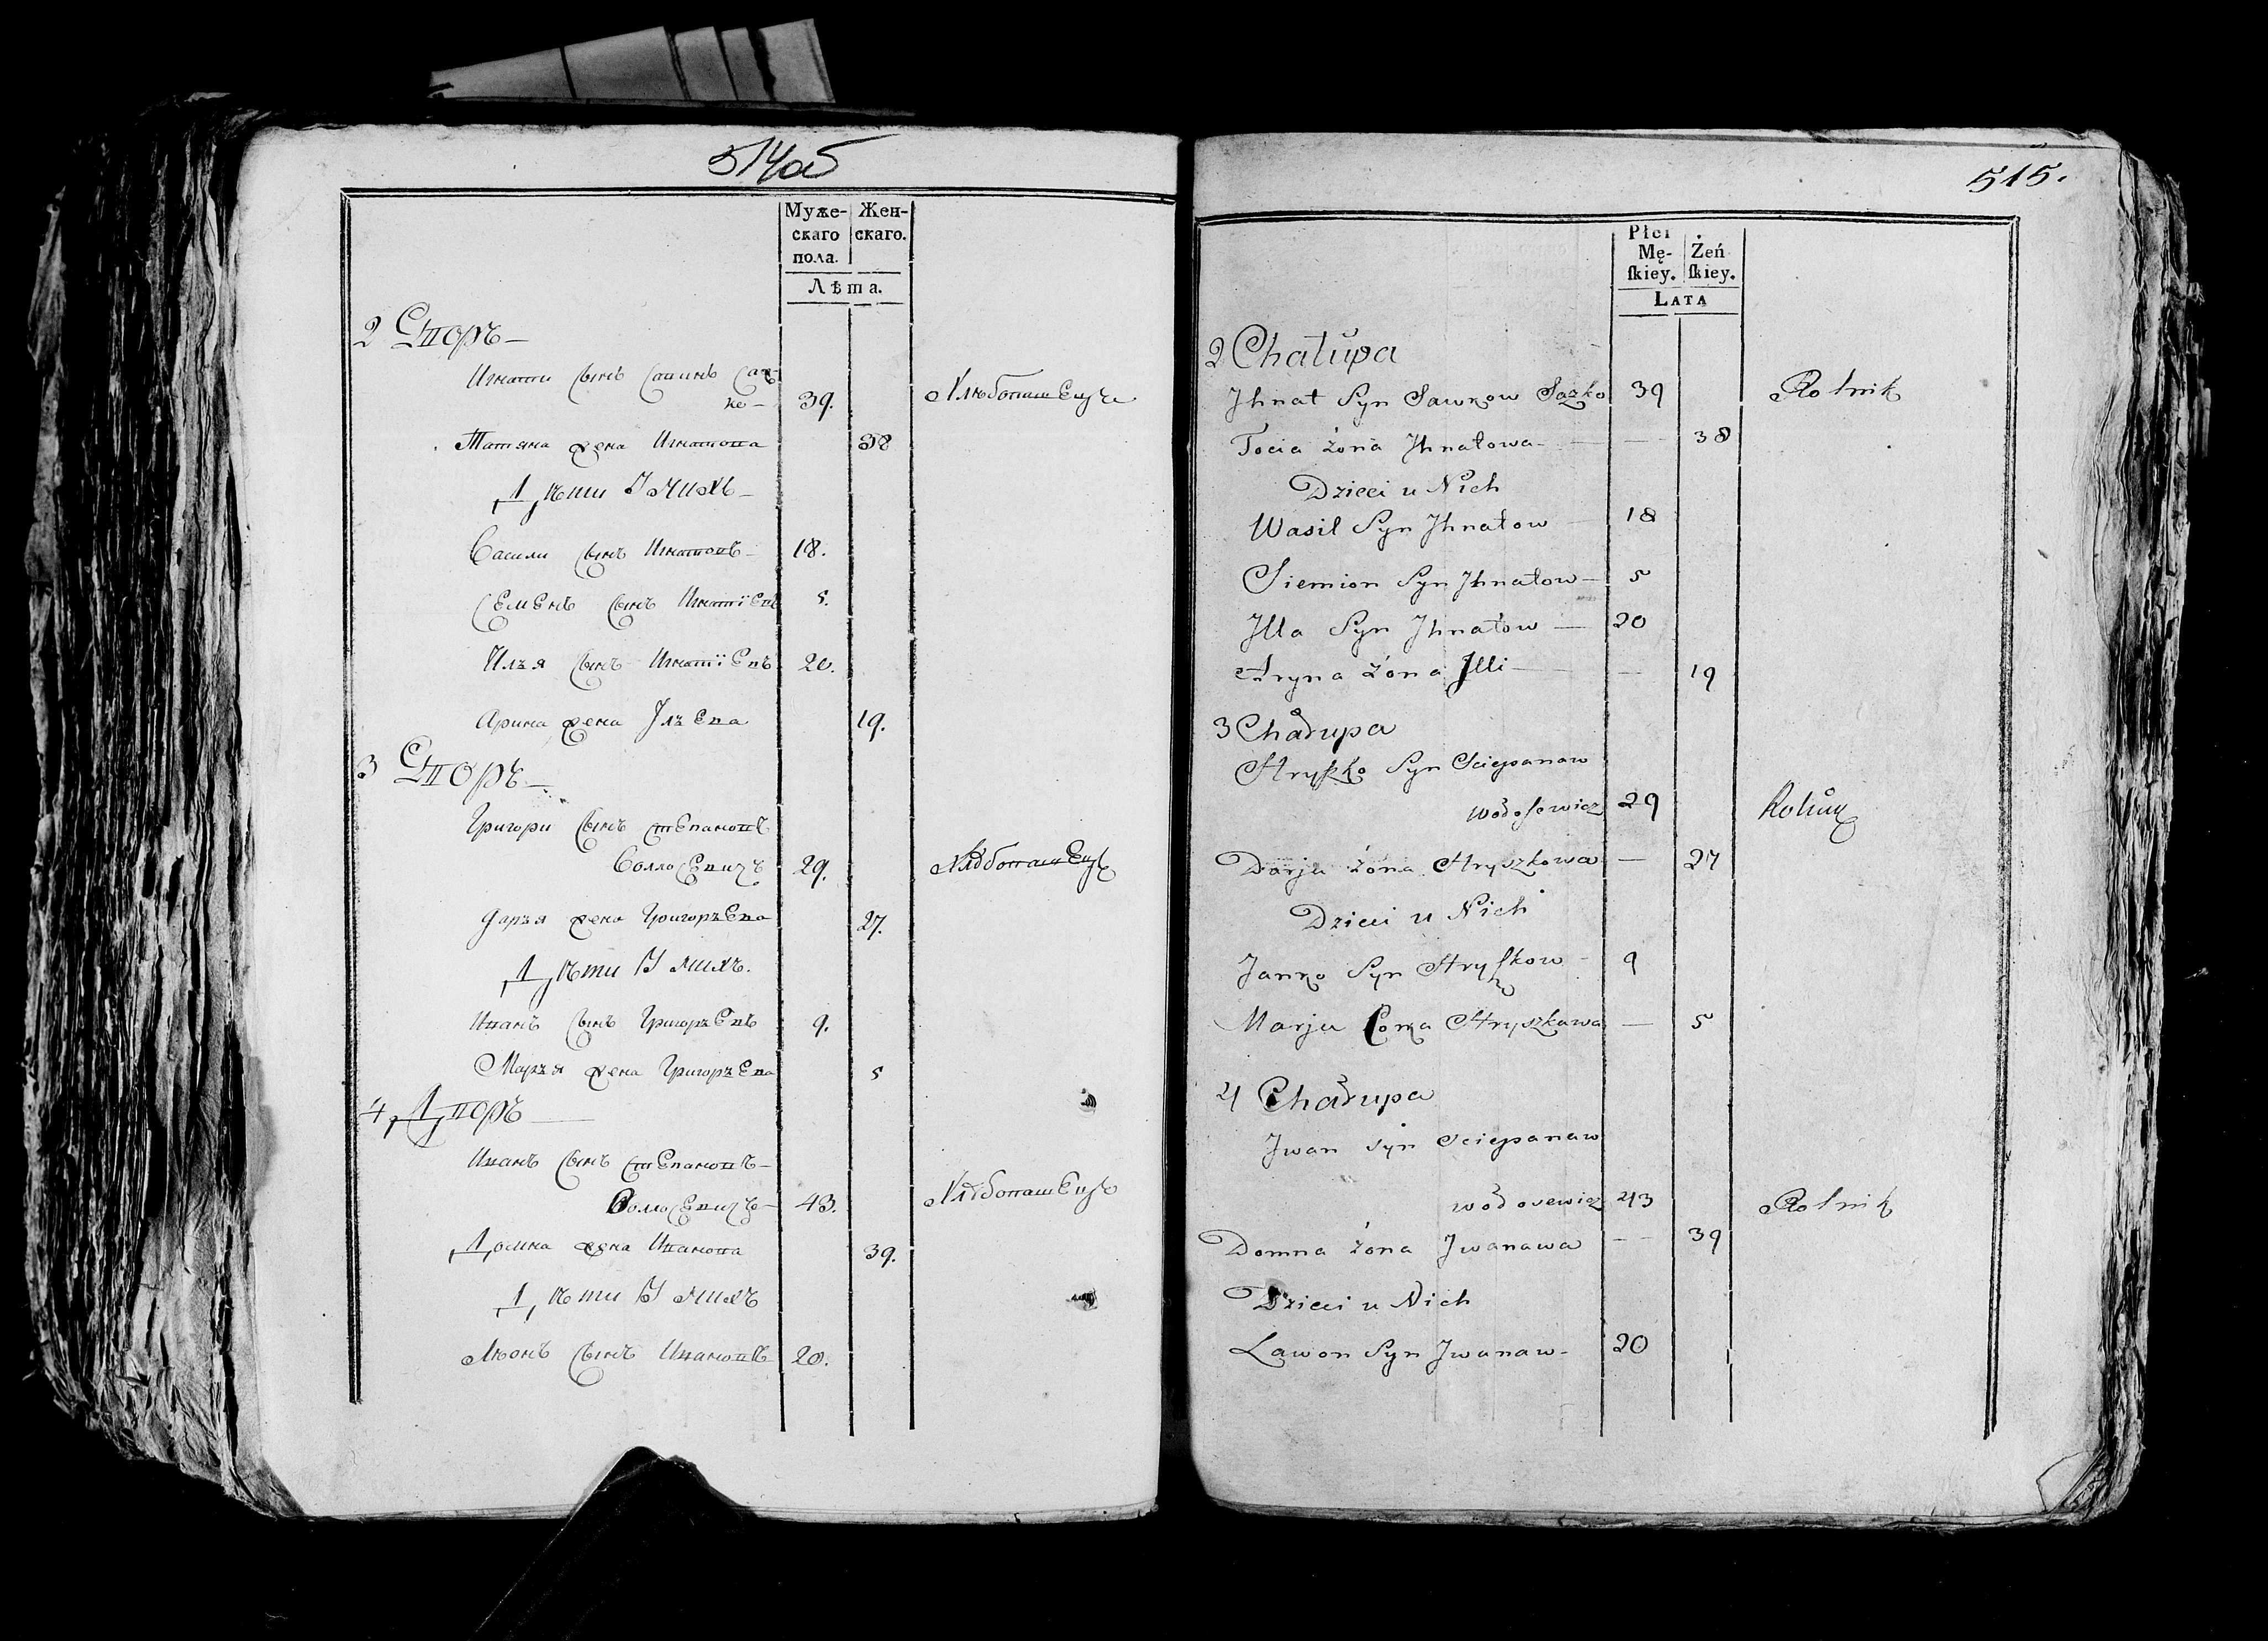 514об
Муже-
скаго
пола.
Жен-
скаго.
Лѣта.
2 Дворъ
Игнати сынъ Савинъ Саж-
ко 39. Хлѣбопашецъ
Татяна жена Игнатова 38
Дѣти У нихъ
Васили сынъ Игнатовъ 18.
Семенъ сынъ Игнатіевъ 5.
Илья сынъ Игнатіевъ 20.
Арина жена Ильева 19.
3 Дворъ
Григори сынъ Степановъ
Воллосевичъ 29. Хлѣбопашецъ
Дарья жена Григорьева 27.
Дѣти У нихъ.
Иванъ сынъ Григорьевъ 9.
Марья жена Григорьева 5
4 Дворъ
Иванъ сынъ Степановъ
Воллосевичъ 43. Хлѣбопашецъ
Домна жена Иванова 39.
Дѣти У нихъ
Леонъ сынъ Ивановъ 20.
515.
Płci
Mę-
skiey.
Żeń
skiey.
LATA
2 Chałupa
Jhnat Syn Sawkow Sazko 39 Rolnik
Tocia żona Jhnatowa 38
Dzieci u Nich
Wasil Syn Jhnatow 18
Siemion Syn Jhnatow 5
Jlla Syn Jhnatow 20
Aryna żona Jlli 19
3 Chałupa
Hryszko Syn Sciepanaw
Wołosewicz 29 Rolnik
Darja żona Hryszkowa 27
Dzieci u Nich
Janko Syn Hryszkow 9
Marja Corka Hryszkawa 5
4 Chałupa
Jwan syn Sciepanaw
wołosewicz 43 Rolnik
Domna żona Jwanawa 39
Dzieci u Nich
Lawon Syn Jwanaw 20